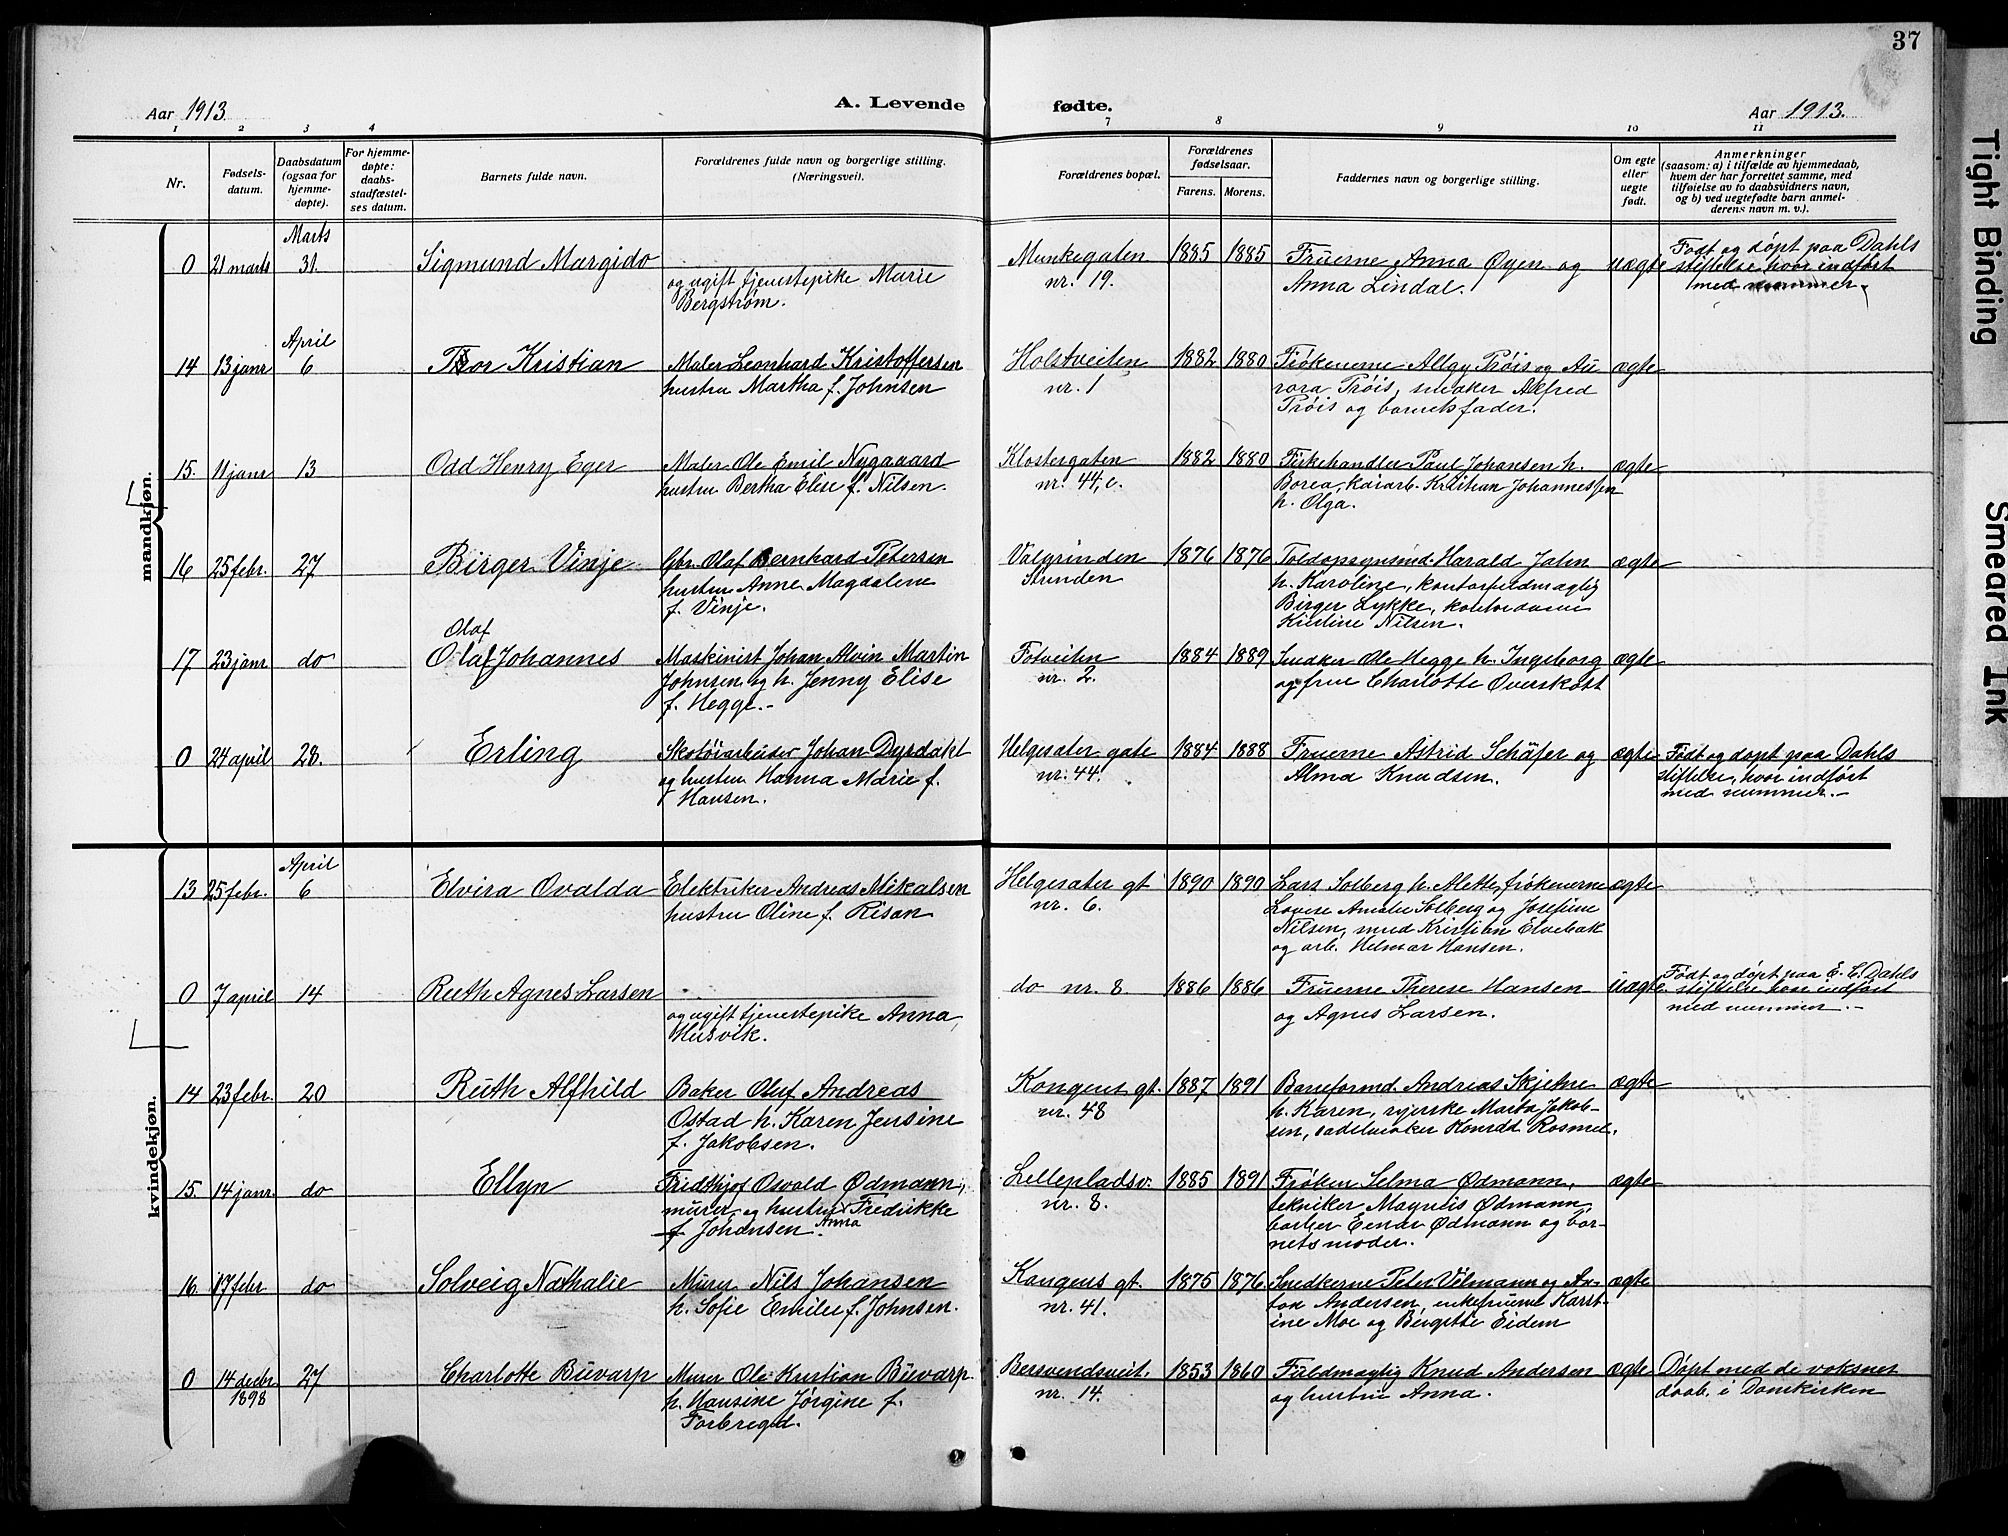 37
Aar 1913.
A. Levende fødte.
Aar 1913.
1 2 3 4 7 8 9 10 11
Nr.
Fødsels-
datum.
Daabsdatum
(ogsaa for
hjemme-
døpte).
For hjemme-
døpte:
daabs-
stadfæstel-
ses datum.
Barnets fulde navn.
Forældrenes fulde navn og borgerlige stilling.
(Næringsvei).
Forældrenes bopæl.
Forældrenes
fødselsaar.
Farens. Morens.
Faddernes navn og borgerlige stilling.
Om egte
eller
uegte
født.
Anmerkninger
(saasom: a) i tilfælde av hjemmedaab,
hvem der har forrettet samme, med
tilføielse av to daabsvidners navn,
og b) ved uegtefødte barn anmel-
derens navn m. v.).
mandkjøn.
Marts
0 21 marts 31. Sigmund Margido
og ugift tjenestepike Marie
Bergstrøm.
Munkegaten
nr. 19.
1885 1885
Fruerne Anna Øyen og
Anna Lindal.
uægte
Født og døpt paa Dahls
stiftelse, hvor indført
med nummer.
April
14 13 janr 6 Tor Kristian
Maler Leonhard Kristoffersen
hustru Martha f. Johnsen
Holstveiten
nr. 1
1882 1880
Frøkenerne Allgy Trøis og Au
rora Trøis, snedker Alfred
Trøis og barnets fader.
ægte
15. 11 janr 13 Odd Henry Eger
Maler Ole Emil Nygaaard
hustru Bertha Elise f. Nilsen.
Klostergaten
nr. 44, c.
1882 1880
Fiskehandler Paul Johansen h.
Borea, kararb. Kristian Johannessen
h. Olga.
ægte
16 25 febr. 27 Birger Vinje
Gbr. Olaf Bernhard Petersen
hustru Anne Magdalene
f. Vinje.
Valgrinden
Strinden
1876 1876
Toldopsynsmd. Harald Jahn
h. Karoline, kontorfuldmægtig
Birger Lykke, kontordame
Kirstine Nilsen.
ægte
Olaf
17 23 janr do Olaf Johannes
Maskinist Johan Alvin Martin
Johnsen og h. Jenny Elise
f. Hegge.-
Totveiten
nr. 2.
1884 1889
Snedker Ole Hegge h. Ingeborg
og frue Charlotte Overskott
ægte
0 24 april 28. Erling
Skotøiarbeider Johan Dyrdahl
og hustru Hanna Marie f.
Hansen.
Helgesæter gate
nr. 44.
1884 1888
Fruerne Astrid Schäfer og
Alma Knudsen.
ægte
Født og døpt paa Dahls
stiftelse, hvor indført
med nummer.-
kvindekjøn.
April
13 25 febr. 6 Elvira Ovalda
Elektriker Andreas Mikalsen
hustru Oline f. Risan
Helgesæter gt
nr. 6.
1890 1890
Lars Solberg h. Alette, frøkenerne
Lovise Amalie Solberg og Josefine
Nilsen, smed Kristian Elvebak
og arb. Helmar Hansen.
ægte
0 7 april 14 Ruth Agnes Larsen
og ugift tjenestepike Anna
Husvik.
do nr. 8
1886 1886
Fruerne Therese Hansen
og Agnes Larsen.
uægte
Født og døpt paa E. C. Dahls
stiftelse hvor indført
med nummer.-
14 23 febr. 20 Ruth Alfhild
Baker Oluf Andreas
Ostad h. Karen Jensine
f. Jakobsen.
Kongens gt.
nr. 48
1887 1891
Baneformd Andreas Skjetne
h. Karen, syerske Marta Jakob-
sen, sadelmaker Konrad Rosmel.
ægte
15. 14 janr. do Ellyn
Fridthjof Osvald Ødmann,
murer og hustru Fredrikke
f. Johansen. Anna
Lilleplads v.
nr. 8.
1885 1891
Frøken Selma Ødmann,
tekniker Magnus Ødmann,
barber Einar Ødmann og bar-
netsmoder.
ægte
16. 17 febr do Solveig Nathalie
Murer Nils Johansen
h. Sofie Emilie f. Johnsen.
Kongens gt.
nr. 41.
1875 1876
Snedkerne Peter Vilmann og An-
ton Andersen, enkefruerne Karst-
ine Moe og Birgitte Eidem
ægte
0 14 decbr. 27 Charlotte Buvarp
1898
Murer Ole Kristian Buvarp
h. Hansine Jørgine f.
Forbregd.
Bersvendsveit.
nr. 14.
1853 1860
Fuldmægtig Knud Andersen
og hustru Anna.
ægte
Døpt med de voksnes
daab, i Domkirken
Tight Binding
Smeared Ink